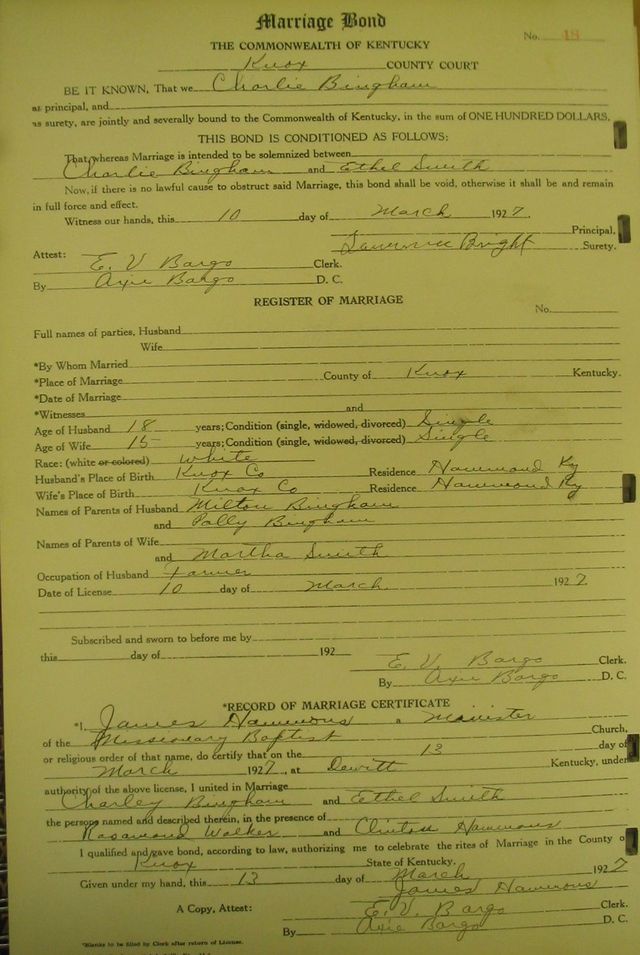 Marriage Bond
No. 18
THE COMMONWEALTH OF KENTUCKY
Knox COUNTY COURT
BE IT KNOWN, That we Charlie Bingham
as principal, and
as surety, are jointly and severally bound to the Commonwealth of Kentucky, in the sum of ONE HUNDRED DOLLARS.
THIS BOND IS CONDITIONED AS FOLLOWS:
That, whereas Marriage is intended to be solemnized between
Charlie Bingham and Ethel Smith
Now, if there is no lawful cause to obstruct said Marriage, this bond shall be void, otherwise it shall be and remain
in full force and effect.
Witness our hands, this 10 day of March 1927.
Principal,
Lawrence Bright Surety.
Attest: E. V Bargo Clerk.
By Axie Bargo D. C.
REGISTER OF MARRIAGE
No.
Full names of parties, Husband
Wife
*By Whom Married
*Place of Marriage County of Knox Kentucky.
*Date of Marriage
*Witnesses and
Age of Husband 18 years; Condition (single, widowed, divorced) Single
Age of Wife 15 years; Condition (single, widowed, divorced) Single
Race: (white or colored) White
Husband's Place of Birth Knox Co Residence Hammond Ky
Wife's Place of Birth Knox Co Residence Hammond Ky
Names of Parents of Husband Milton Bingham
and Polly Bingham
Names of Parents of Wife
and Martha Smith
Occupation of Husband Farmer
Date of License 10 day of March 1927
Subscribed and sworn to before me by
this day of 192
E. V. Bargo Clerk.
By Axie Bargo D. C.
*RECORD OF MARRIAGE CERTIFICATE
*I, James Hammons a Minister
of the Missionary Baptist Church,
or religious order of that name, do certify that on the 13 day of
March 1927, at Dewitt Kentucky, under
authority of the above license, I united in Marriage
Charley Bingham and Ethel Smith
the persons named and described therein, in the presence of
Rosamond Walker and Clinton Hammons
I qualified and gave bond, according to law, authorizing me to celebrate the rites of Marriage in the County o
Knox State of Kentucky.
Given under my hand, this 13 day of March 1927
James Hammons
A Copy, Attest: E. V. Bargo Clerk.
By Axie Bargo D. C.
*Blanks to be filled by Clerk after return of License.